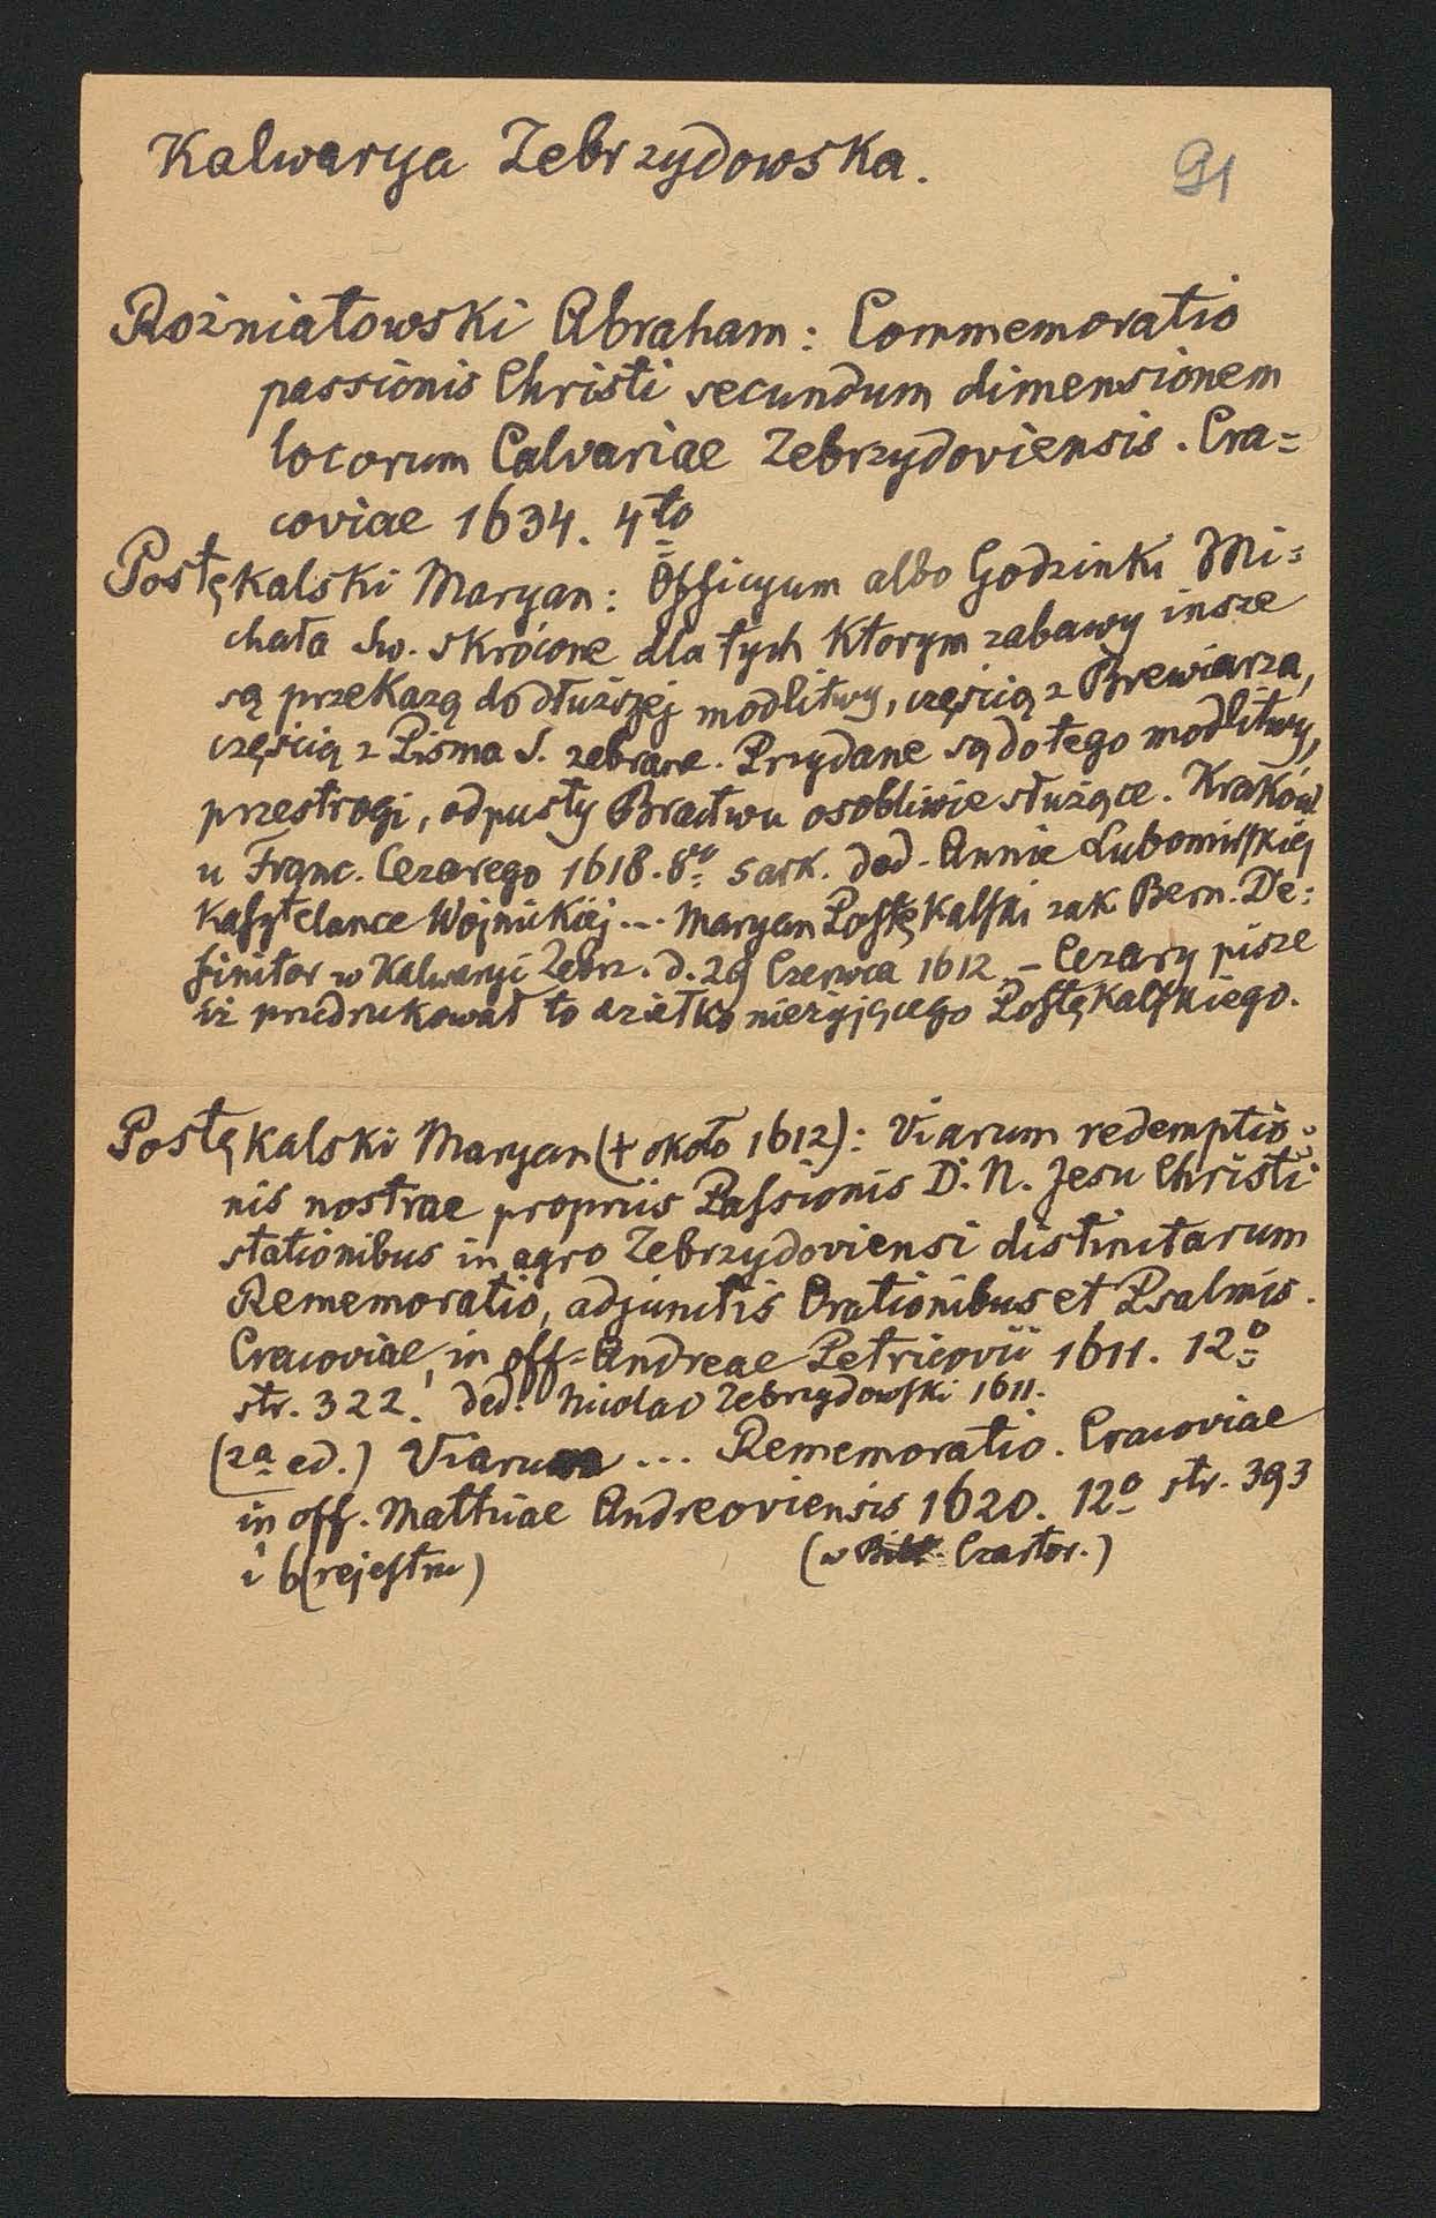 Kalwarya Zebrzydowska.
91
Rożniatowski Abraham: Commemoratio
passionis Christi secundum dimensionem
locorum Calvariae Zebrzydoviensis. Cra=
coviae 1634. 4to
Postękalski Maryan: Officyum albo Godzinki Mi=
chała Św. skrócone dla tych ktorym zabawy insze
są przekazą do dłuższej modlitwy, częścią z Brewiarza,
częścią z Pisma S. zebrane. Przydane są do tego modlitwy,
przestrogi, odpusty Bractwu osobliwie służące. Kraków
u Franc. Cezarego 1618. 8vo 5 ark. ded. Annie Lubomirskiej
Kasztelance Wojnickiej... Maryan Postękalski zak. Bern. De=
finitor w Kalwaryi Zebrz. d. 29 Czerwca 1612 – Cezary pisze
iż przedrukował to dziełko nieżyjącego Postękalskiego.
Postękalski Maryan († około 1612): Viarum redemptio=
nis nostrae propriis Passionis D. N. Jesu Christi
stationibus in agro Zebrzydoviensi distinctarum
Rememoratio, adjunctis Orationibus et Psalmis.
Cracoviae, in off. Andreae Petricovii 1611. 12o
str. 322. ded. Nicolao Zebrzydowski 1611.
(2a ed.) Viarum ... Rememoratio. Cracoviae
in off. Matthiae Andreoviensis 1620. 12o str. 393
i 6 (rejestru) (w Czartor.)